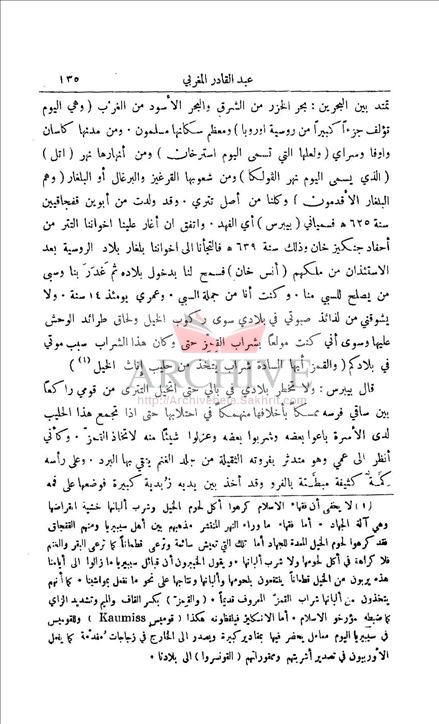 عبد القادر المغربي ١٣٥
تمتد بين البحرين : بحر الخزر من الشرق والبحر الأسود من الغرب ( وهي اليوم
تؤلف جزءاً كبيراً من روسية اوروبا ) ومعظم سكانها مسلمون ٠ ومن مدنها كاسان
واوفا وسراي ( ولعلها التي تسمى اليوم استرخان ) ومن أنهارها نهر ( اتل )
( الذي يسمى اليوم نهر الفولكا ) ومن شعوبها القرغيز والبرغال أو البلغار ( وهم
البلغار الأقدمون ) وكلنا من أصل تتري ٠ وقد ولدت من أبوين قفجاقيين
سنة ٦٢٥ ه فسمياني ( بيبرس ) أي الفهد ٠ واتفق ان أغار علينا اخواننا التتر من
أحفاد جنكيز خان وذلك سنة ٦٣٩ ه فالتجأنا الى اخواننا بلغار بلاد الروسية بعد
الاستئذان من ملكهم ( أنس خان ) فسمح لنا بدخول بلاده ثم غدر بنا وسبى
من يصلح للسبي منا ٠ وكنت أنا من جملة السبي ٠ وعمري يومئذ ١٤ سنة ٠ ولا
يشوقني من لذائذ صبوتي في بلادي سوى ركوب الخيل ولحاق طرائد الوحش
عليها وسوى أني كنت مولعاً بشراب القمز حتى وكان هذا الشراب سبب موتي
في بلادكم ( والقمز أيها السادة شراب يتخذ من حليب إناث الخيل ) (١)
قال بيبرس : ولا تخطر بلادي في بالي حتى أتخيل التتري من قومي راكعاً
بين ساقي فرسه ممسكاً بأخلافها منهمكاً في احتلابها حتى اذا تجمع هذا الحليب
لدى الأسرة باعوا بعضه وشربوا بعضه وعزلوا شيئاً منه لاتخاذ القمز ٠ وكأني
أنظر الى عمي وهو متدثر بفروته الثقيلة من جلد الغنم يتقي بها البرد ٠ وعلى رأسه
كمة كثيفة مبطنة بالفرو وقد أخذ بين يديه زبدية كبيرة فوضعها على فمه
(١) لا يخفى أن فقهاء الاسلام كرهوا أكل لحوم الخيل وشرب ألبانها خشية انقراضها
وهي آلة الجهاد ٠ أما فقهاء ما وراء النهر المنتشر مذهبهم بين أهل سيبيريا ومنهم القفجاق
فقد كرهوا لحوم الخيل المعدة للجهاد أما تلك التي تعيش سائمة وترعى قطعاناً كما ترعى البقر والغنم
فلا كراهة في أكل لحومها ولا شرب ألبانها ٠ و يقول الخبيرون أن قبائل سيبيريا ما زالوا الى أيامنا
هذه يربون من الخيل قطعاناً ينتفعون بلحومها وألبانها ونتاجها على نحو ما نفعل بمواشينا ٠ كما أنهم
يتخذون من ألبانها شراب القمز المعروف قديماً ٠ ( والقمز ) بكسر القاف والميم وتشديد الزاي
كما ضبطه مؤرخو الاسلام ٠ أما الانكليز فيلفظونه هكذا ( قوميس Kaumiss ) وللقوميس
في سيبيريا اليوم معامل يحضر فيها بمقادير كبيرة ويصدر الى الخارج في زجاجات مفدمة كما يفعل
الأوربيون في تصدير أشربتهم ومعقوراتهم ( القونسروا ) الى بلادنا ٠
ARCHIVE
http://Archivebeta.Sakhrit.com